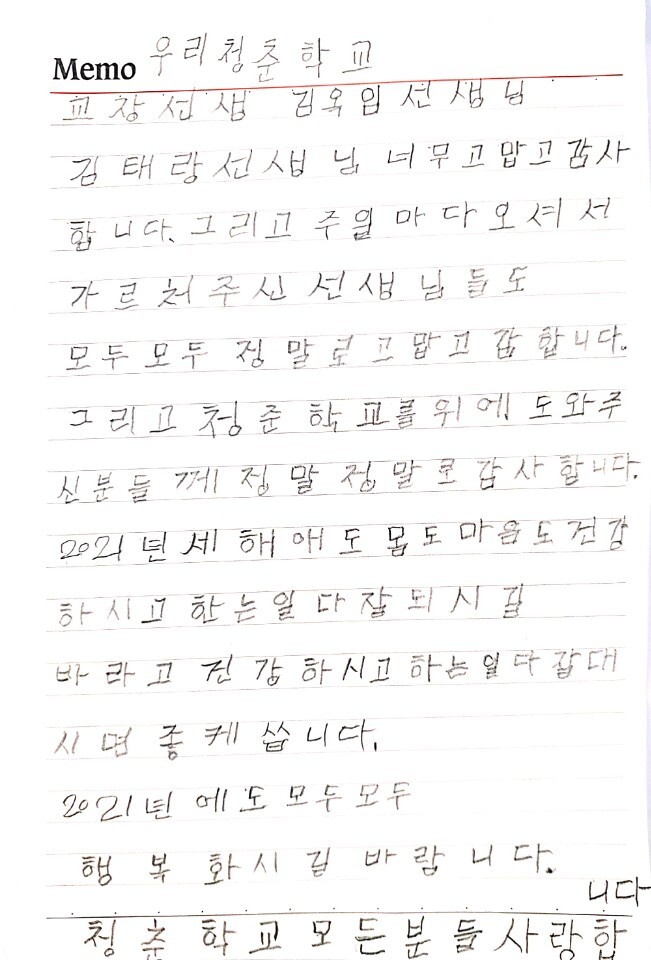 Memo 우리청춘학교
교장선생 김옥입선생님
김태랑선생님 너무고맙고감사
합니다. 그리고 주일마다오셔서
가르처주신 선생님들도
모두모두 정말로고맙고감합니다.
그리고청춘학교를위에도와주
신분들께정말정말로감사합니다.
2021년세해애도몸도마음도건강
하시고한는일다잘되시길
바라고건강하시고하는일다잘대
시면좋케씁니다.
2021년에도모두모두
행복화시길바람니다.
니다
청춘학교모든분들사랑합